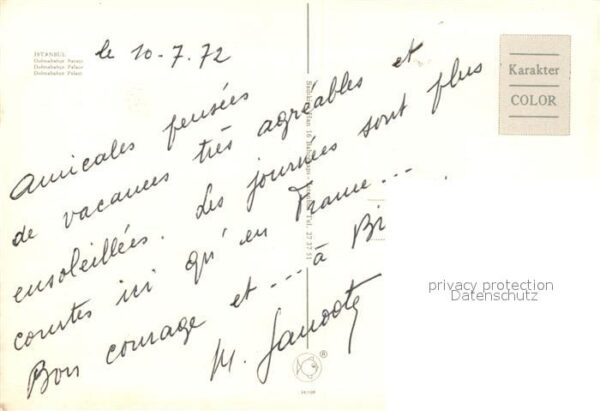 ISTANBUL
Dolmabahçe Sarayı
Dolmabahçe Palace
Dolmabahçe Palast
le 10.7.72
Amicales pensées
de vacances très agréables et
ensoleillées. Les journées sont plus
courtes ici qu'en France...
Bon courage et ... à Bi
M.
Karakter
COLOR
privacy protection
Datenschutz